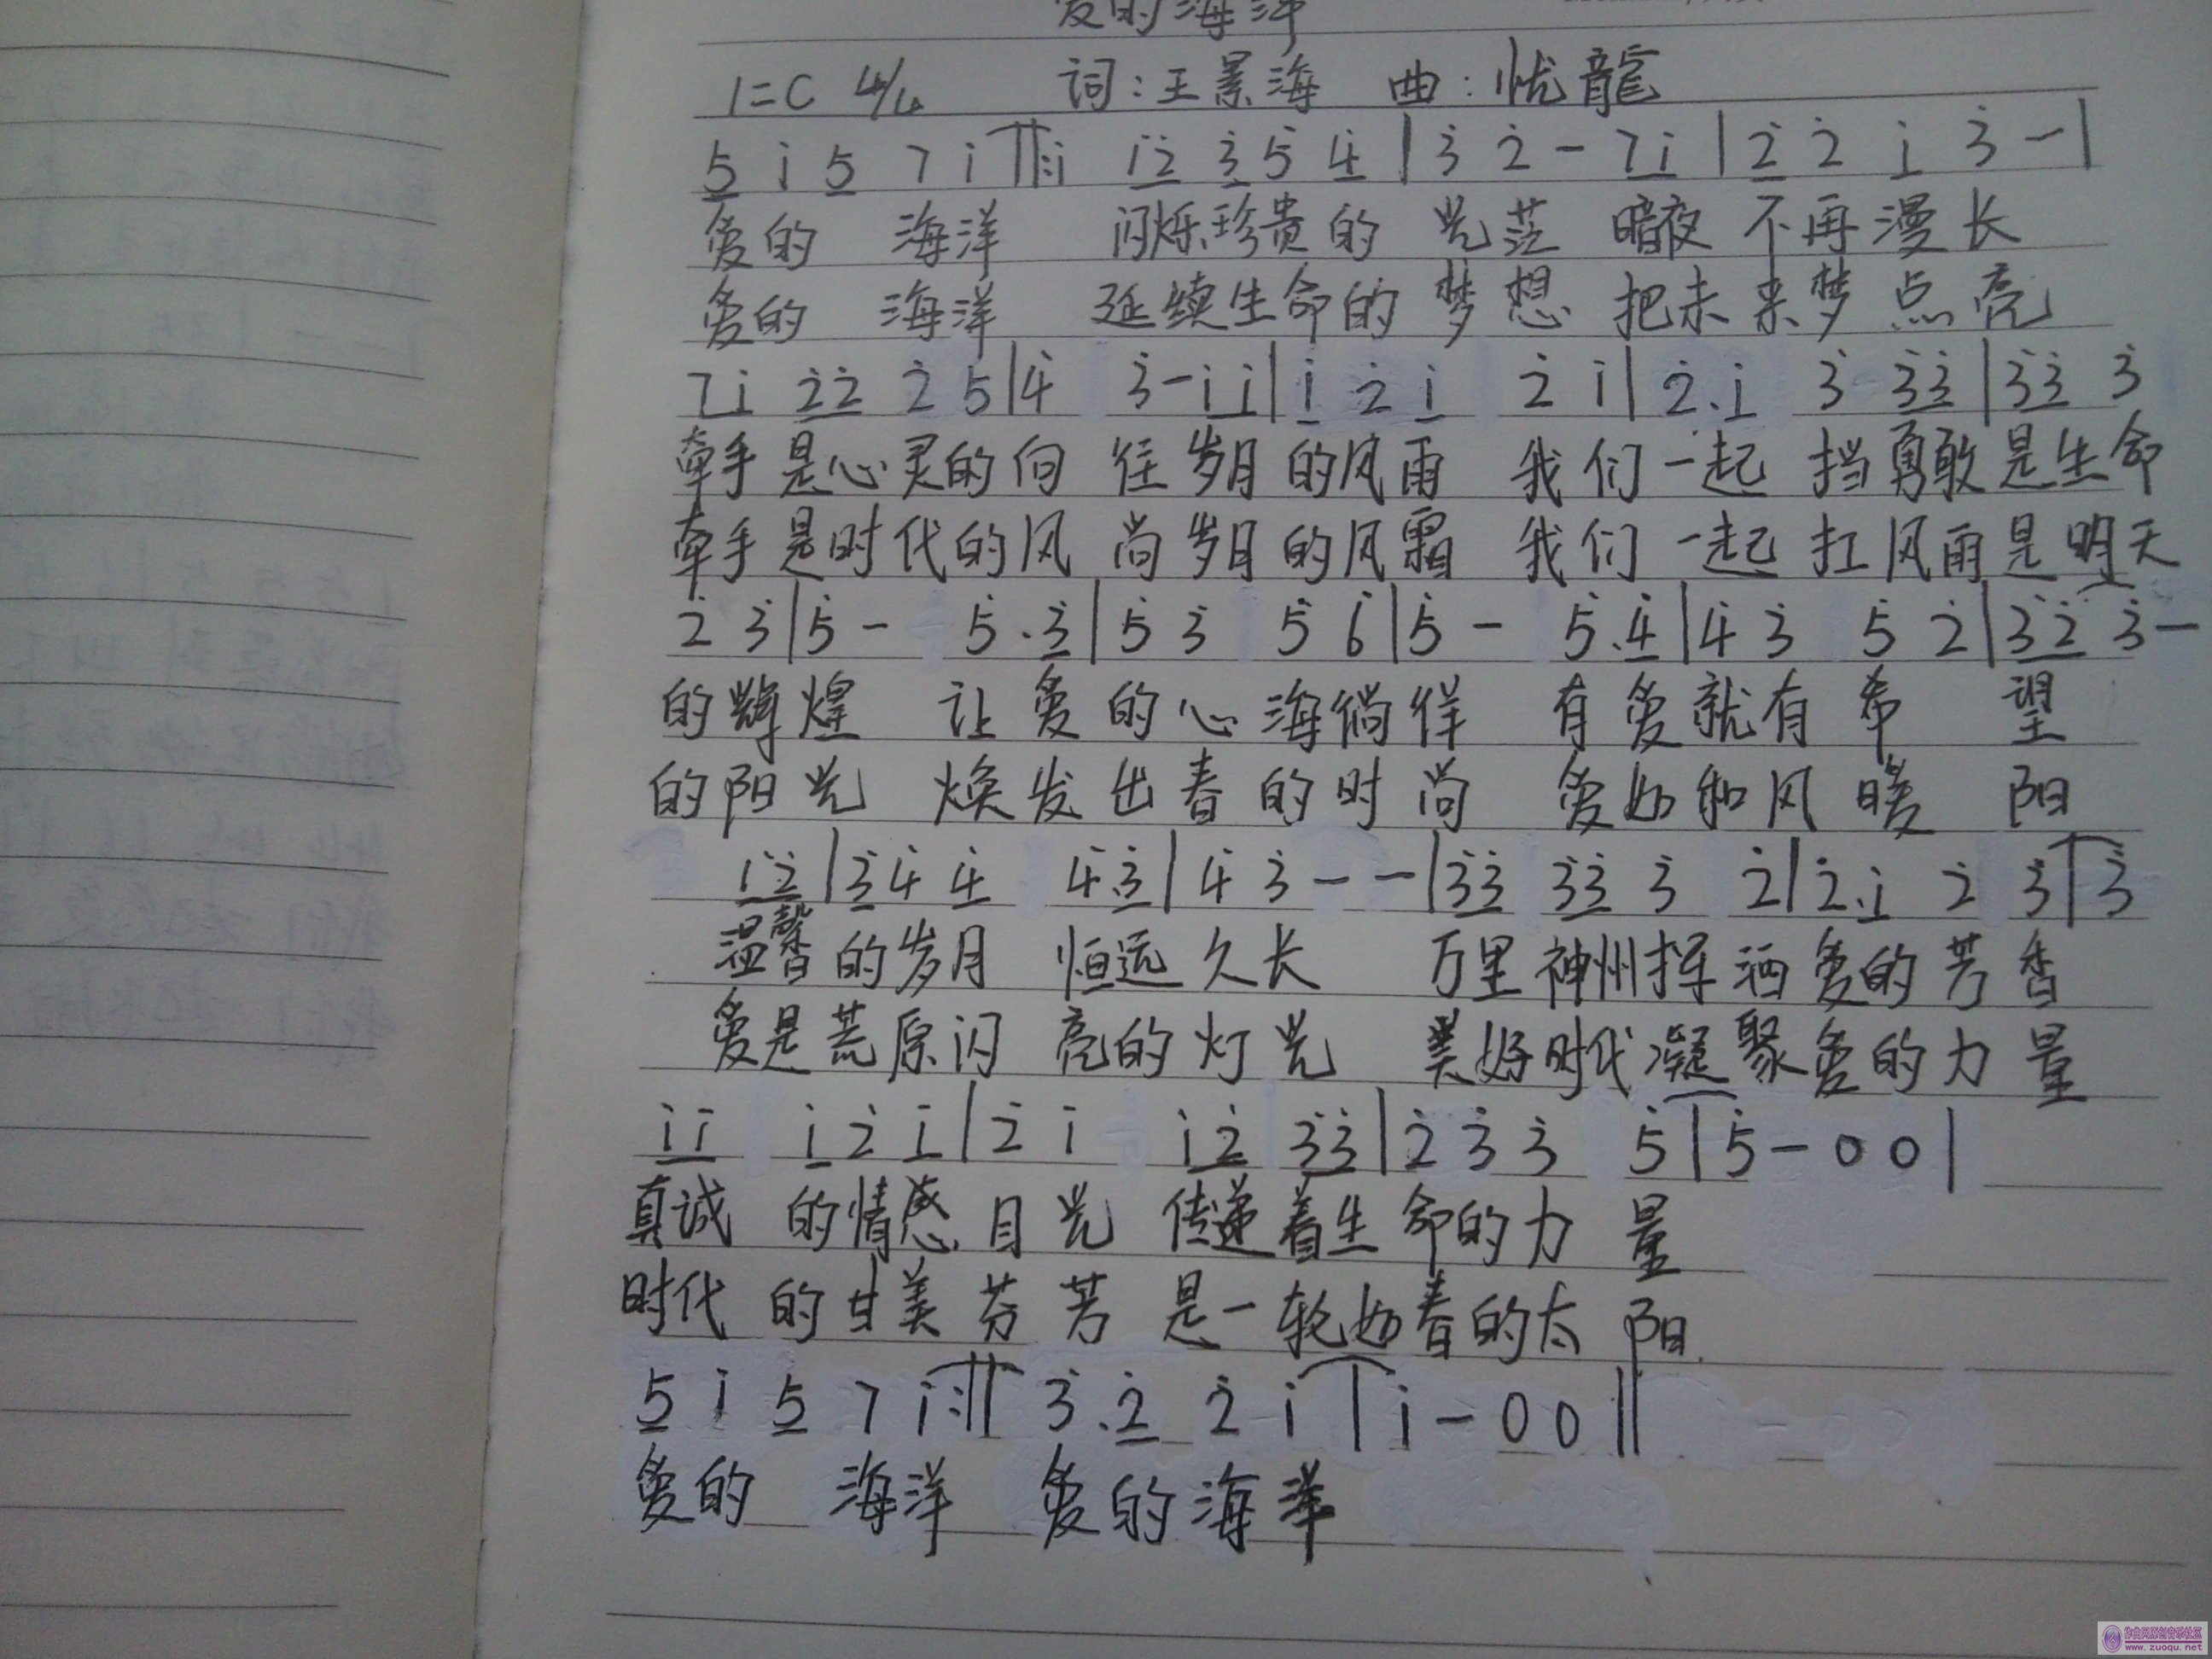 爱的海洋
1=C 4/4 词:王景海 曲:忧龍
5 i 5 7 i ‖: i i2 3 5 4 | 3 2 - 7i | 2 2 i 3 - |
爱的 海洋 闪烁珍贵的 光茫 暗夜 不再漫长
爱的 海洋 延续生命的 梦想 把未来梦 点亮
7i 22 2 5 | 4 3 - i i | i 2 i 2 i | 2. i 3 33 | 33 3
牵手 是心灵的向 往岁月 的风雨 我们一起 挡勇敢是生命
牵手 是时代的风 尚岁月 的风霜 我们 一起 扛风雨是明天
2 3 | 5 - 5 . 3 | 5 3 5 6 | 5 - 5.4 | 4 3 5 2 | 32 3 -
的辉煌 让爱的心海徜徉 有爱就有希 望
的阳光 焕发出春的时尚 爱如和风暖 阳
i2 | 3 4 4 4.3 | 4 3 - - | 33 33 3 2 | 2. i 2 3 | 3
温馨的岁月 恒远久长 万里神州挥洒爱的芳香
爱是荒原闪 亮的灯光 美好时代凝聚爱的力量
i i i 2 i | 2 i i2 33 | 2 3 3 5 | 5 - 0 0 |
真诚 的情感目光 传递着生命的力 量
时代 的甘美芬芳 是一轮如春的太 阳
5 i 5 7 i :‖ 3 . 2 2 i | i - 0 0 ‖
爱的 海洋 爱的海洋
作曲网原创音乐社区
www.zuoqu.net